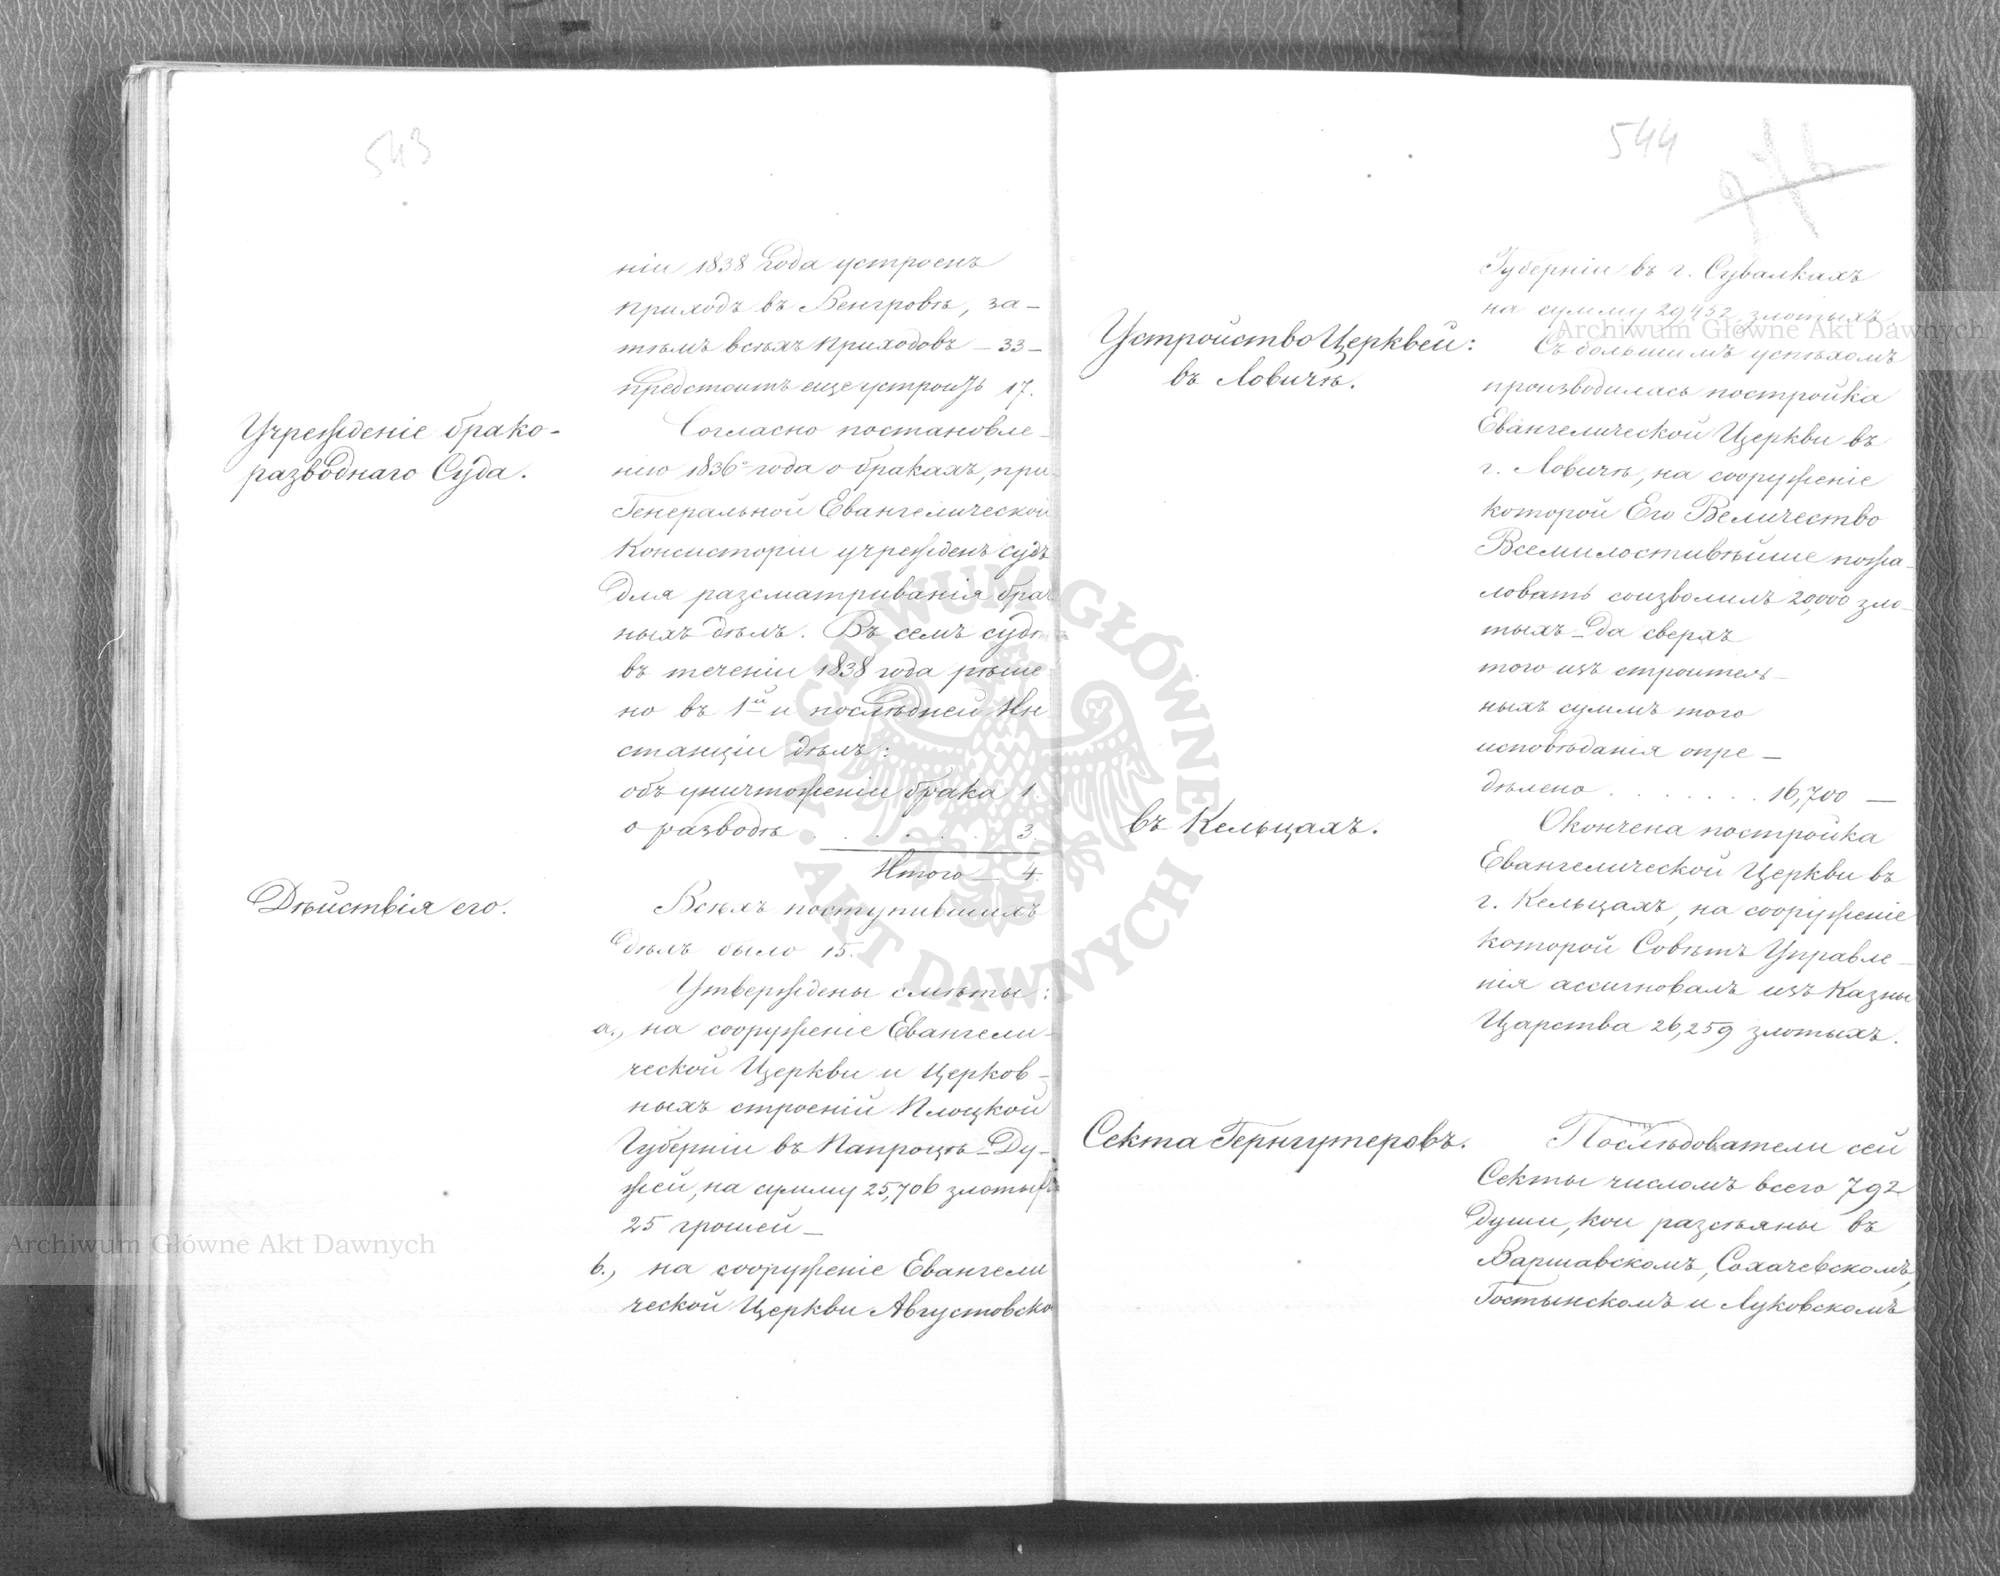 543
ніи 1838 года устроенъ
приходъ въ Венгровѣ, за-
тѣмъ всѣхъ приходовъ - 33 -
предстоитъ еще устроить 17.
Учрежденіе брако-
разводнаго Суда.
Согласно постановле-
нію 1836 года о бракахъ, при
Генеральной Евангелической
Консисторіи учрежденъ судъ
для разсматриванія брач
ныхъ дѣлъ. Въ семъ судѣ
въ теченіи 1838 года рѣше
но въ 1й и послѣдней Ин
станціи дѣлъ:
объ уничтоженіи брака 1.
о разводѣ . . . . . . 3.
Итого - 4.
Дѣйствія его.
Всѣхъ поступившихъ
дѣлъ было 15.
Утверждены смѣты:
а., на сооруженіе Евангели-
ческой Церкви и церков-
ныхъ строеній Плоцкой
Губерніи въ Папроцѣ-Ду-
жей, на сумму 25,706 злотых
25 грошей -
b., на сооруженіе Евангели
ческой Церкви Августовско
544
Губерніи въ г. Сувалкахъ
на сумму 29,452 злотыхъ
Устройство Церквей:
въ Ловичѣ.
Съ большимъ успѣхомъ
производилась постройка
Евангелической Церкви въ
г. Ловичѣ, на сооруженіе
которой Его Величество
Всемилостивѣйше пожа-
ловать соизволилъ 20,000 зло-
тыхъ - да сверхъ
того изъ строитель-
ныхъ суммъ того
исповѣданія опре -
дѣлено . . . . . . . 16,700 -
въ Кельцахъ.
Окончена постройка
Евангелической Церкви въ
г. Кельцахъ, на сооруженіе
которой Совѣтъ Управле-
нія ассигновалъ изъ Казны
Царства 26,259 злотыхъ.
Секта Гернгутеровъ.
Послѣдователи сей
Секты числомъ всего 792
души, кои разсѣяны въ
Варшавскомъ, Сохачевскомъ,
Гостынскомъ и Луковскомъ
Archiwum Główne Akt Dawnych
Archiwum Główne Akt Dawnych
ARCHIWUM GŁÓWNE
AKT DAWNYCH